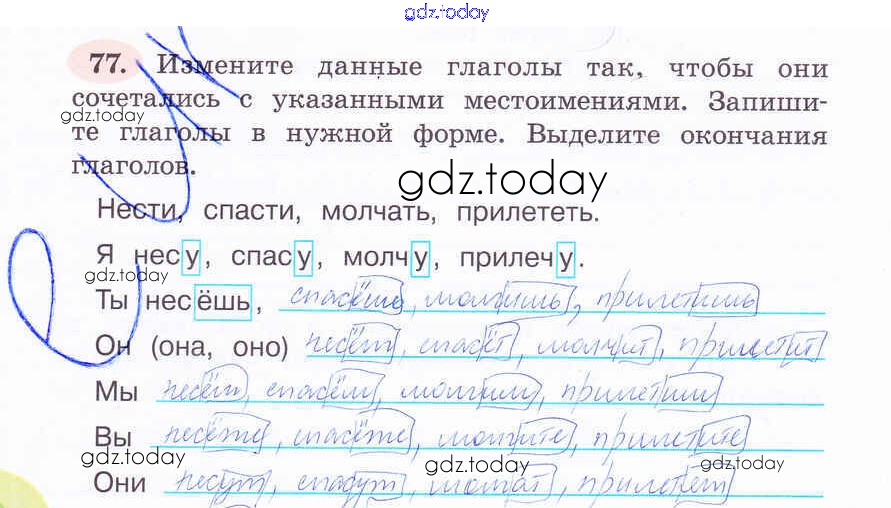 gdz.today
77. Измените данные глаголы так, чтобы они
сочетались с указанными местоимениями. Запиши-
gdz.today
те глаголы в нужной форме. Выделите окончания
глаголов.
gdz.today
Нести, спасти, молчать, прилететь.
Я несу, спасу, молчу, прилечу.
gdz.today
Ты несёшь, спасёшь, молчишь, прилетишь
Он (она, оно) несёт, спасёт, молчит, прилетит
Мы несём, спасём, молчим, прилетим
Вы несёте, спасёте, молчите, прилетите
gdz.today gdz.today gdz.today
Они несут, спасут, молчат, прилетят